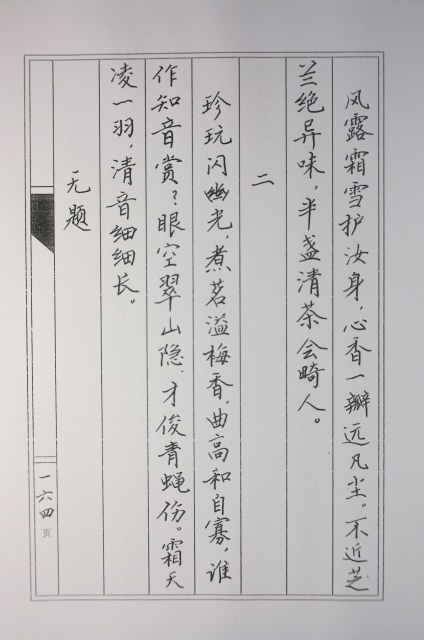 风露霜雪护汝身，心香一瓣远凡尘。不近芝
兰绝异味，半盏清茶会畸人。
二
珍玩闪幽光，煮茗溢梅香，曲高和自寡，谁
作知音赏？眼空翠山隐，才俊青蝇伤。霜天
凌一羽，清音细细长。
无题
一六四页